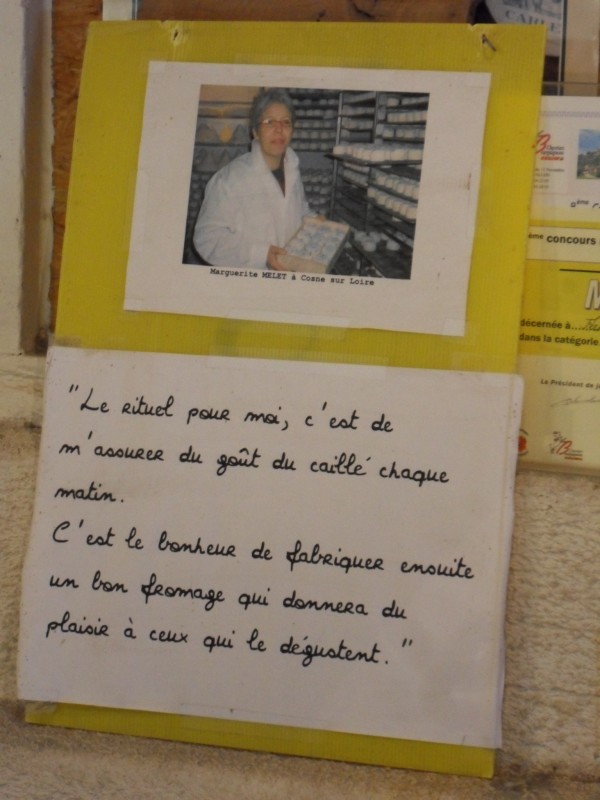 CAILLE
Marguerite MELET à Cosne sur Loire
ème concours
décernée à
dans la catégorie
Le Président de
"Le rituel pour moi, c'est de
m'assurer du goût du caillé chaque
matin.
C'est le bonheur de fabriquer ensuite
un bon fromage qui donnera du
plaisir à ceux qui le dégustent."